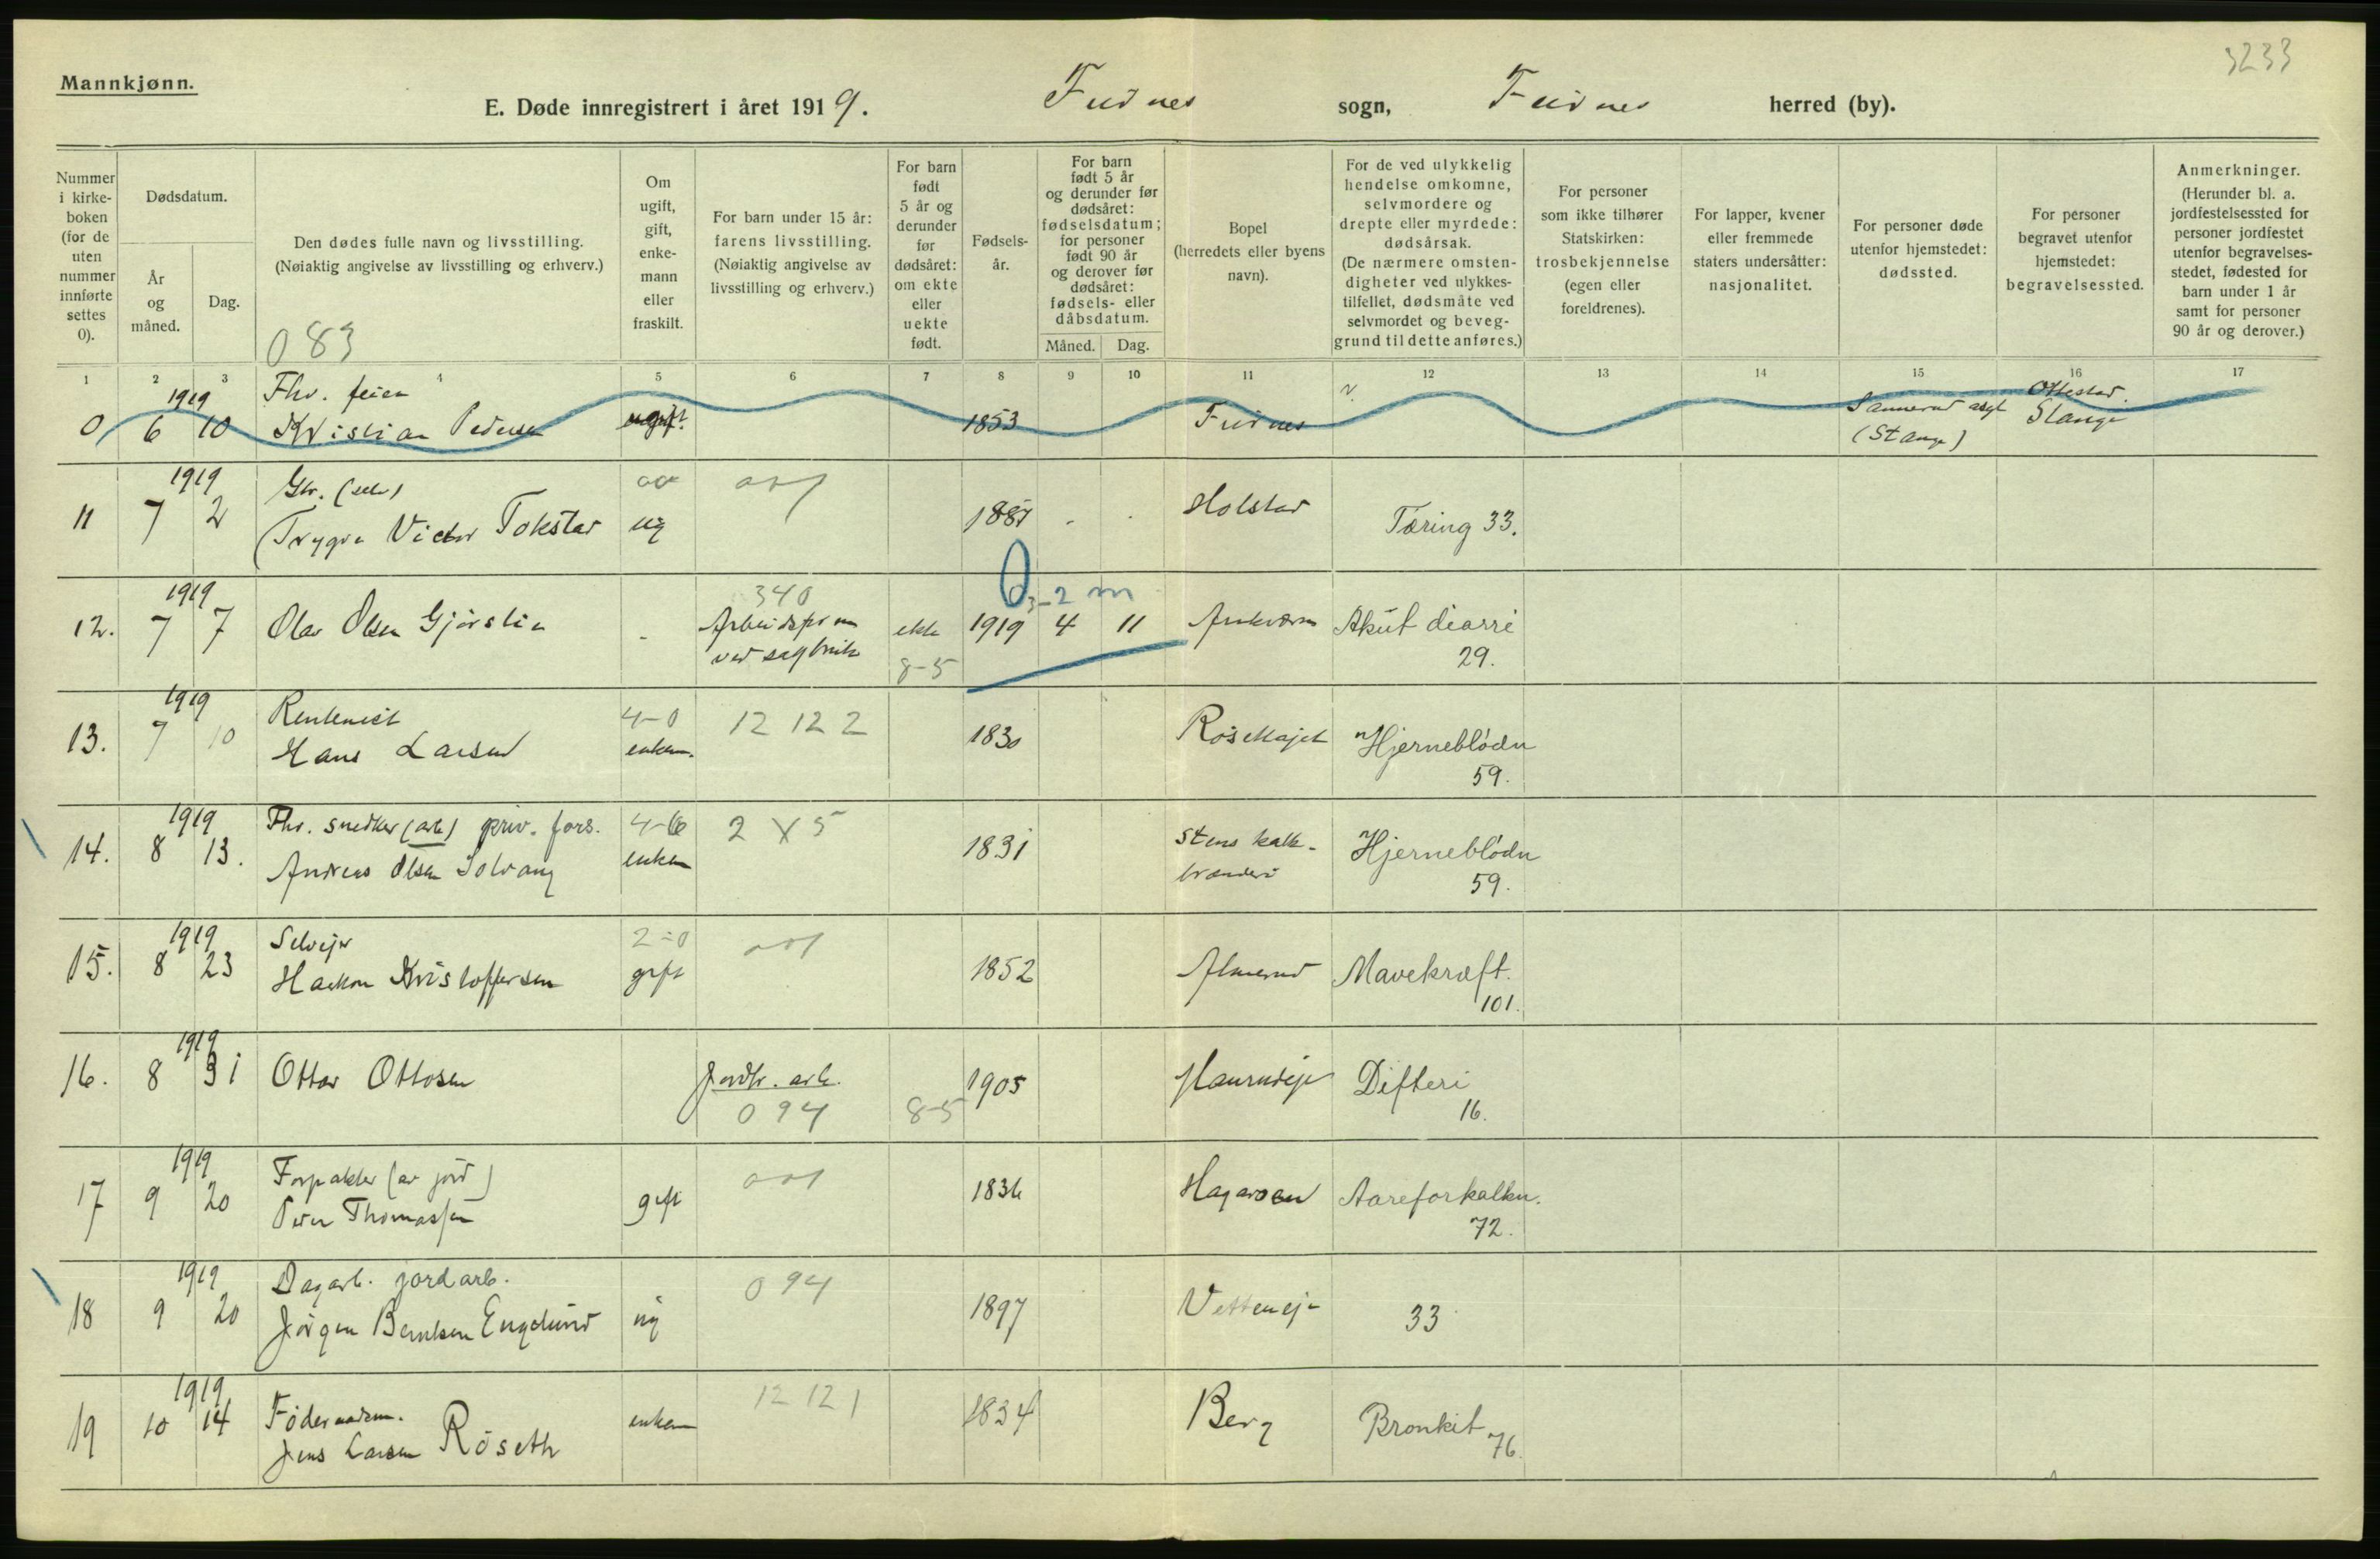 3233
Mannkjønn.
E. Døde innregistrert i året 1919. Furnes sogn, Furnes herred (by).
Nummer i kirke-boken (for de uten nummer innførte settes 0).
Dødsdatum.
År og måned.
Dag.
Den dødes fulle navn og livsstilling.
(Nøiaktig angivelse av livsstilling og erhverv.)
083
Om ugift, gift, enke-mann eller fraskilt.
For barn under 15 år: farens livsstilling. (Nøiaktig angivelse av livsstilling og erhverv.)
For barn født 5 år og derunder før dødsåret: om ekte eller uekte født.
Fødsels-år.
For barn født 5 år og derunder før dødsåret: fødselsdatum; for personer født 90 år og derover før dødsåret: fødsels- eller dåbsdatum.
Måned. Dag.
Bopel (herredets eller byens navn).
For de ved ulykkelig hendelse omkomne, selvmordere og drepte eller myrdede: dødsårsak. (De nærmere omsten-digheter ved ulykkes-tilfellet, dødsmåte ved selvmordet og beveg-grund til dette anføres.)
For personer som ikke tilhører Statskirken: trosbekjennelse (egen eller foreldrenes).
For lapper, kvener eller fremmede staters undersåtter: nasjonalitet.
For personer døde utenfor hjemstedet: dødssted.
For personer begravet utenfor hjemstedet: begravelsessted.
Anmerkninger. (Herunder bl. a. jordfestelsessted for personer jordfestet utenfor begravelses-stedet, fødested for barn under 1 år samt for personer 90 år og derover.)
1 2 3 4 5 6 7 8 9 10 11 12 13 14 15 16 17
1919 Fhv. feier Ottestad.
0 6 10 Kristian Pedersen ugift. 1853 Furnes Sannerud asyl (Stange) Stange
1919 Gbr. (selv)
11 7 2 Trygve Victor Tokstad ug 1887 - - Holstad Tæring 33.
1919 340 0 3-2 m
12. 7 7 Olav Olsen Gjørslien - Arbeidsform. ved sagbruk ekte 1919 4 11 Akut diarré
8-5 29.
1919 Rentenist 4-0 12 12 2
13. 7 10 Hans Larsen enkem. 1830 Hjerneblødn
59.
1919 Fhv. snedker (arb) priv. fors. 4-6 2 X 5
14. 8 13. Andreas Olsen Solvang enkem 1831 Stens kalk-brænderi Hjerneblødn
59.
1919 Selvejer 2-0
15. 8 23 Haakon Kristoffersen gift 1852 Almerud Mavekræft.
101.
1919
16. 8 31 Ottar Ottosen Jordbr. arb. 1905 Difteri
094 8-5 16.
1919 Forpakter (av jord)
17 9 20 Peter Thomassen gift 1836 Aareforkalkn.
72.
1919 Dagarb. jordarb. 094
18 9 20 Jørgen Berntsen Englund ug 1897 Vetteneje 33
1919 Føderaadsm. 12 12 1
19 10 14 Jens Larsen Røseth enkem 1834 Berg Bronkit 76.